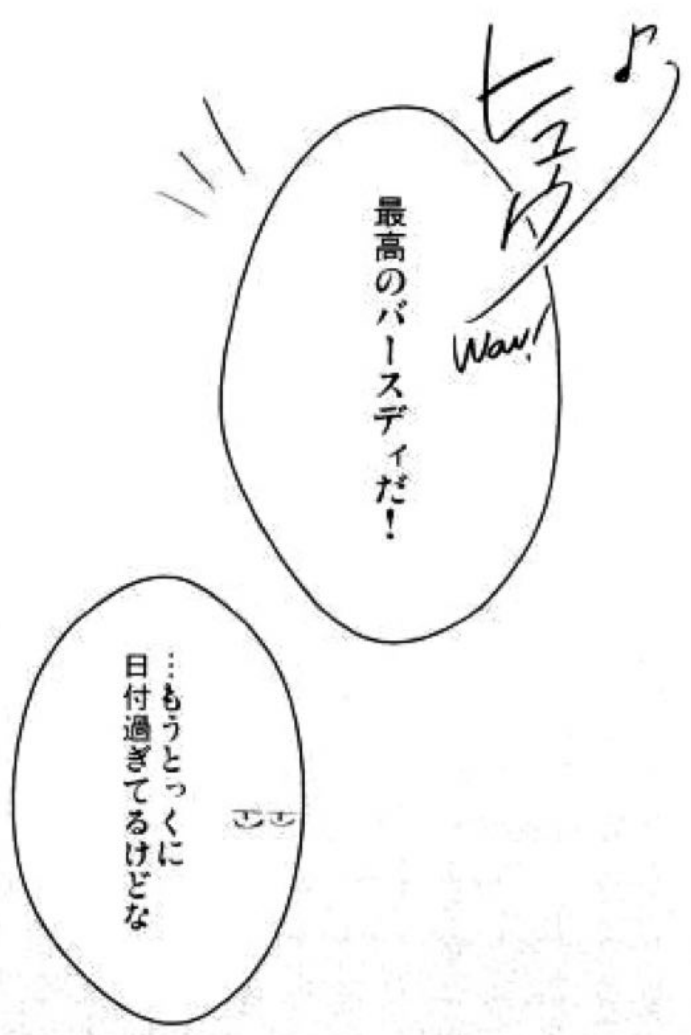 ♪
ヒュウ
Wow!
最高のバースディだ!
…もうとっくに
日付過ぎてるけどな